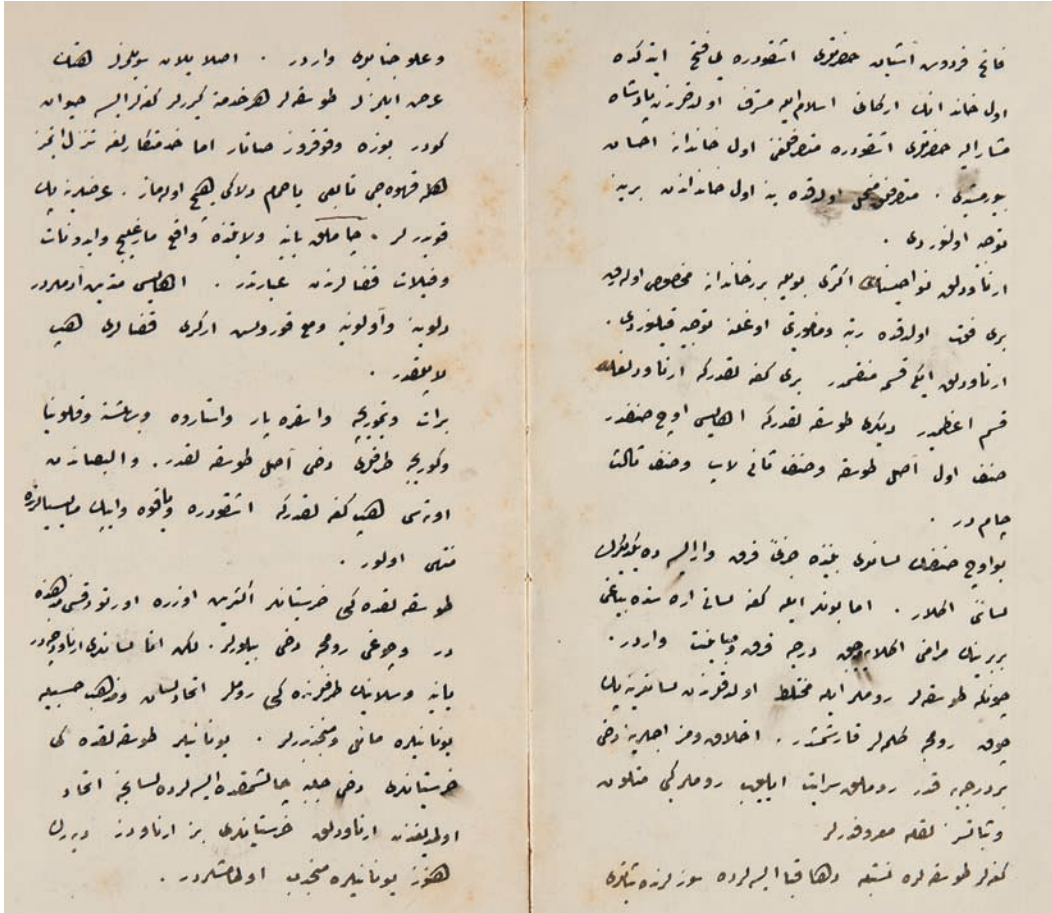 فاتح فردوس آشیان حضرتلری اشقودره یی فتح ایتدكده
اول خاندانك اركانی اسلام ایله مشرف اولدقلرندن پادشاه
مشار الیه حضرتلری اشقودره متصرفلغنی اول خاندانه احسان
بیورمشیدی . متصرفلق منحل اولدقده ینه اول خانداندن برینه
توجه اولنوردی .
ارناودلق نواحیسنك اكثری بویله بر خاندانه مخصوص اوله رق
بری فوت اولدقده رتبه و مأموریتی اوغلنه توجیه قیلنوردی .
ارناودلق ایكی قسمه منقسمدر بری كغه لقدركه ارناودلغك
قسم اعظمیدر دیكری طوسقه لقدركه اهالیسی اوچ صنفدر
صنف اول اصل طوسقه و صنف ثانی لاب و صنف ثالث
چام در .
بو اوچ صنفك لسانلری بیننده جزئی فرق وار ایسه ده یكدیكرینك
لسانی اكلار . اما بونلر ایله كغه لسانی اره سنده بیاغی
بربرینك مرامنی اكلایه مه جق درجه فرق و مباینت واردر .
چونكه طوسقه لر روملر ایله مختلط اولدقلرندن لسانلرینه پك
چوق رومجه كلمه لر قارشمشدر . اخلاق و مزاجلرینه دخی
بر درجه یه قدر روملق سرایت ایلیوب روملر كبی متلون
و ثباتسز لقله معروفدرلر
كغه لر طوسقه لره نسبتله دها قبا ایسه لرده سوزلرنده ثباتلری
و علو جنابلری واردر . اصلا یلان سویلمزلر هتك
عرض ایلمزلر طوسقه لر هر خدمته كیررلر كغه لر ایسه حیوان
كودر بوزه و قوقروز صاتار اما خدمتكارلغه تنزل ایتمز
هله قهوه جی تابعی یا حمام دلاكی هیچ اوله ماز . عرضلرینه پك
قویدرلر . چاملق یانیه ولایتنده واقع مارغلیچ و ایدونات
و فیلات قضالرندن عبارتدر . اهالیسی متدین آدملردر
دلوینه و آولونیه مع قورولش اركری قضالری هپ
لابلقدر .
برات و تپوریجه و اسقره پار و استاروه و پرمتی و قلونیا
و كوریجه طرفلری دخی اصل طوسقه لقدر . و البصاندن
اوته سی هپ كغه لقدركه اشقودره و یاقوه و ایپك مالیسیالرنده
منتهی اولور .
طوسقه لقده كی خرستیانلر اكثریت اوزره اورتودقس مذهبنده
در و چوغی رومجه دخی بیلورلر . لكن آنا لسانلری ارناودجه در
یانیه و سلانیك طرفلرنده كی روملر اتحاد لسان و مذهب حسبیله
یونانیلره مائل و منجذبدرلر . یونانیلر طوسقه لقده كی
خرستیانلری دخی جلبه چالشمقده ایسه لرده لسانجه اتحاد
اولمدیغندن ارناودلق خرستیانلری بز ارناودز دیه رك
هنوز یونانیلره منجذب اولمامشلردر .